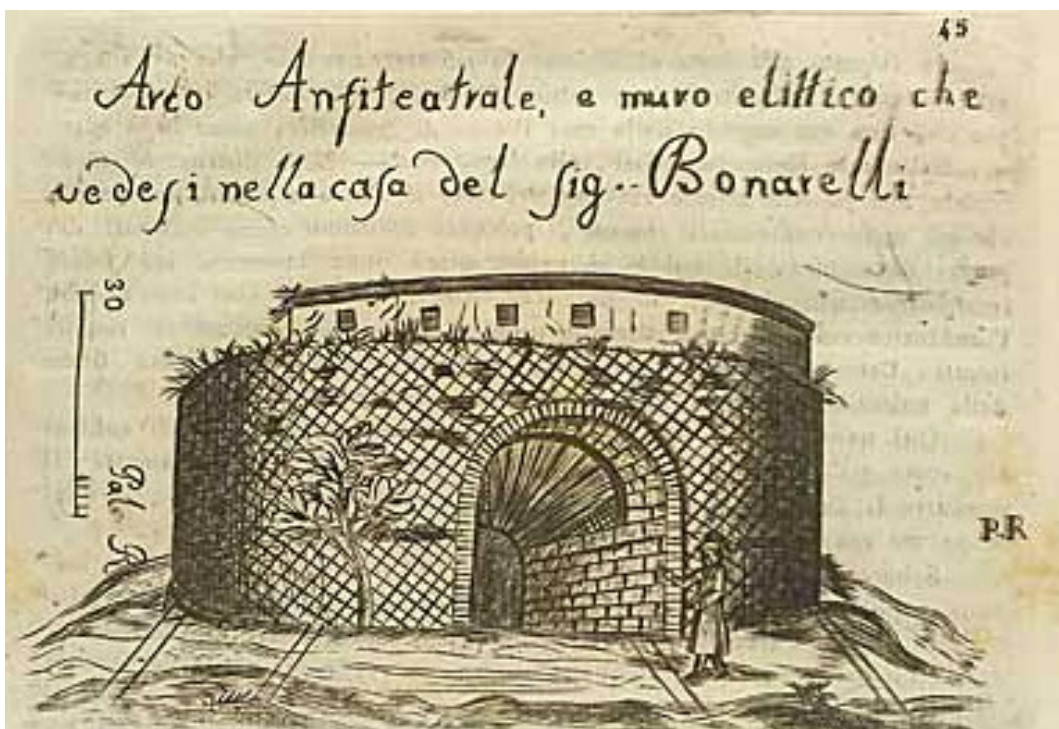 45
Arco Anfiteatrale, e muro elittico che
vedesi nella casa del sig.. Bonarelli
30
Pal. R
P.R